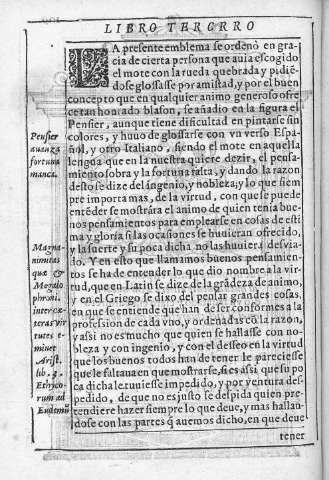 LIBRO TERCRRO
LA presente emblema se ordenò en gra-
cia de cierta persona que auia escogido
el mote con la rueda quebrada y pidiẽ-
dose glosasse por amistad, y por el buen
concepto que en qualquier animo generoso ofre
ce tan honrado blason, se añadio en la figura el
Pensier, aunque tiene dificultad en pintarse sin
colores, y huuo de glosarse con vn verso Espa-
ñol, y otro Italiano, siendo el mote en aquella
lengua que en la nuestra quiere dezir, el pensa-
miento sobra y la fortuna falta, y dando la razon
desto se dize del ingenio, y nobleza, y lo que siem
pre importa mas, de la virtud, con que se puede
entẽder se mostrára el animo de quien tenia bue
nos pensamientos para emplearse en cosas de esti
ma y gloria si las ocasiones se huuieran ofrecido,
y la suerte y su poca dicha no las huuiera desuia-
do. Y en esto que llamamos buenos pensamien-
tos se ha de entender lo que dio nombre a la vir
tud, que en Latin se dize de la grãdeza de animo,
y en el Griego se dixo del pensar grandes cosas,
en que se entiende que han de ser conformes a la
profession de cada vno, y ordenadas cõ la razon,
y assi no es mucho que quien se hallasse con no-
bleza y con ingenio, y con el desseo en la virtud
que los buenos todos han de tener le pareciesse
que le faltaua en que mostrarse, si es assi que su po
ca dicha le tuuiesse impedido, y por ventura des-
pedido, de que no es justo se despida quien pre-
tendiere hazer siempre lo que deue, y mas hallan
dose con las partes q̃ auemos dicho, en que deue
tener
Pensier
auanza
fortuna
manca.
Magna-
nimitas
quæ &
Megalo
phroni.
inter cæ
teras vir
tutes e-
minet
Arist.
lib. 4.
Ethyco-
rum ad
Eudemũ